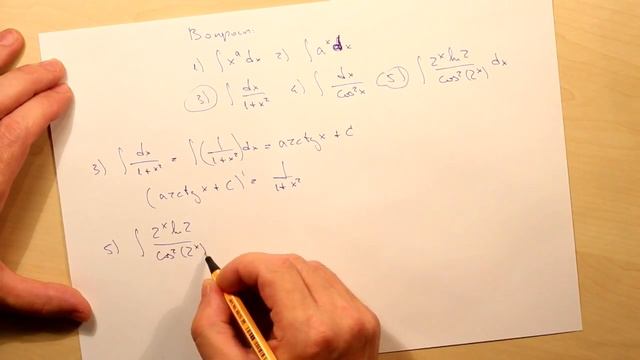 Вопросы:
1) ∫xᵃdx 2) ∫aˣdx
3) ∫dx/(1+x²) 4) ∫dx/cos²x 5) ∫(2ˣln2)/(cos²(2ˣ))dx
3) ∫dx/(1+x²) = ∫(1/(1+x²))dx = arctgx + C
(arctgx + C)' = 1/(1+x²)
5) ∫(2ˣln2)/(cos²(2ˣ))